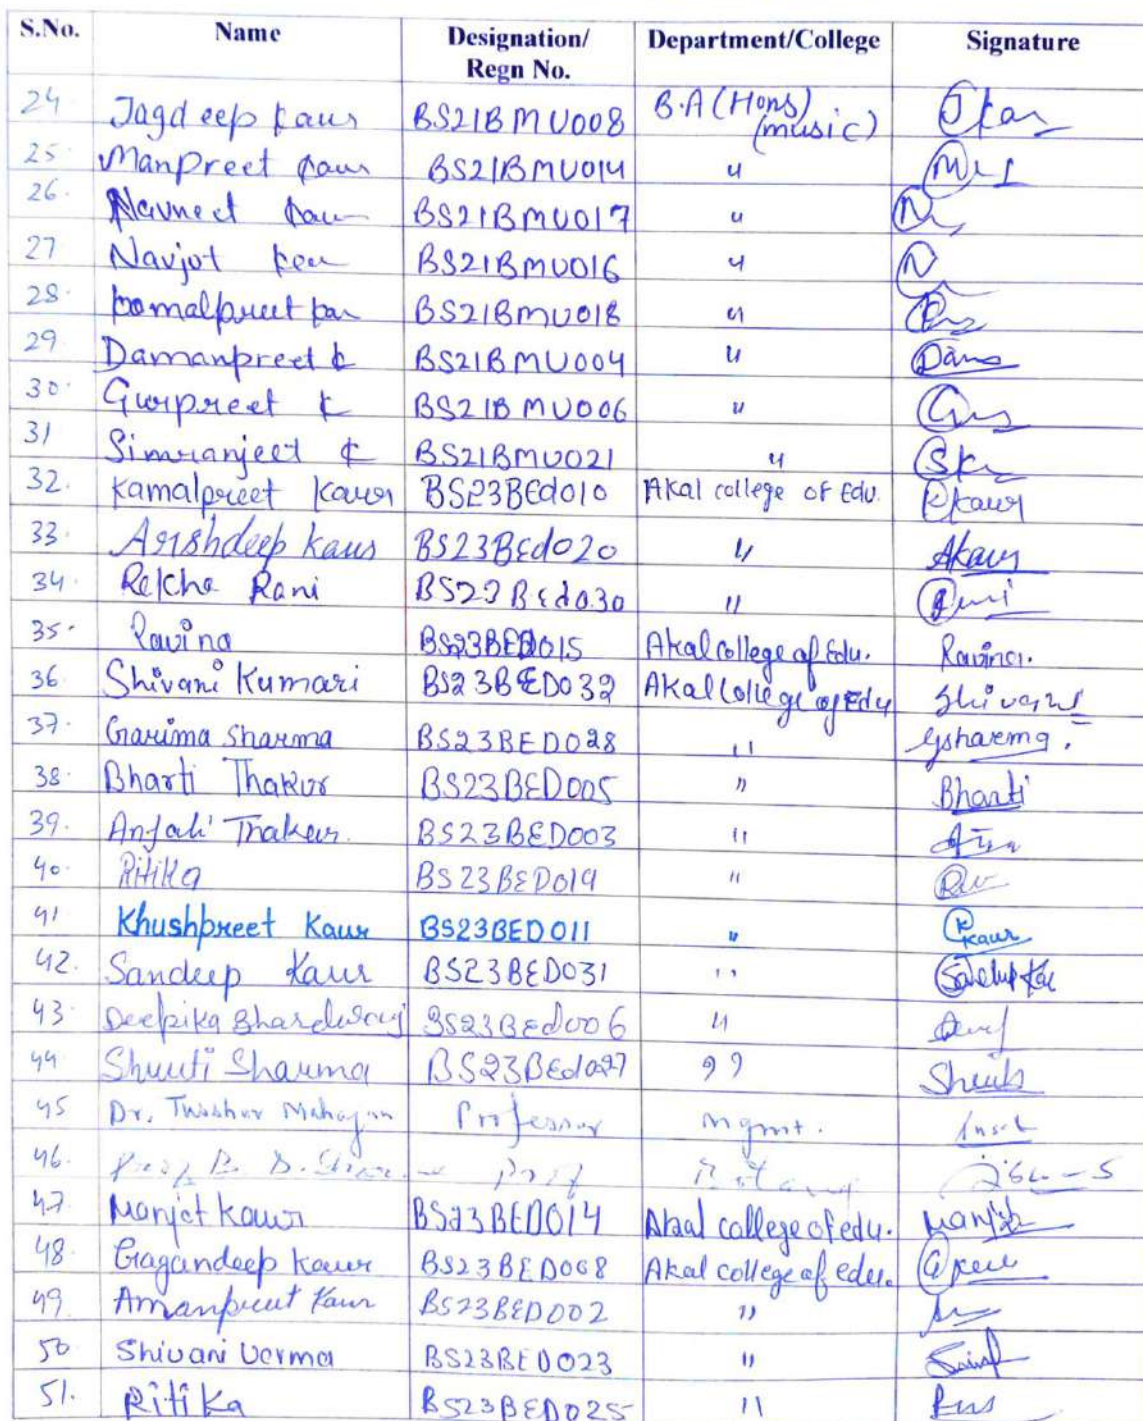 S.No. Name Designation/ Regn No. Department/College Signature
24 Jagdeep Kaur BS21BMU008 B.A (Hons) (music) Jkar
25. Manpreet Kaur BS21BMU014 "
26. Navneet Kau BS21BMU017 " N
27 Navjot Kau BS21BMU016 " N
28. Komalpreet Kar BS21BMU018 "
29. Damanpreet K BS21BMU004 " Dama
30. Gurpreet K BS21BMU006 "
31 Simranjeet K BS21BMU021 "
32. Kamalpreet Kaur BS23BEd010 Akal college of Edu. Kkaur
33. Arshdeep kaur BS23BEd020 " AKaur
34. Rekha Rani BS23BEd030 " Rani
35. Ravina BS23BED015 Akal college of Edu. Ravina.
36 Shivani Kumari BS23BED032 Akal College of Edu Shivani
37. Garima Sharma BS23BED028 " Gsharma.
38. Bharti Thakur BS23BED005 " Bharti
39. Anjali Thakur. BS23BED003 "
40. Ritika BS23BED019 "
41 Khushpreet Kaur BS23BED011 " K Kaur
42. Sandeep Kaur BS23BED031 " Sandeep Kau
43. Deepika Bhardwaj BS23BEd006 "
44 Shruti Sharma BS23BEd027 " Shruti
45 Dr. Tushar Mahajan Professor Mgmt.
46. Prof B. D. Prof
47. Manjot Kaur BS23BED014 Akal college of edu. Manjot
48. Gagandeep Kaur BS23BED008 Akal college of edu. Gkau
49. Amanpreet Kaur BS23BED002 "
50 Shivani Verma BS23BED023 "
51. Ritika BS23BED025 "